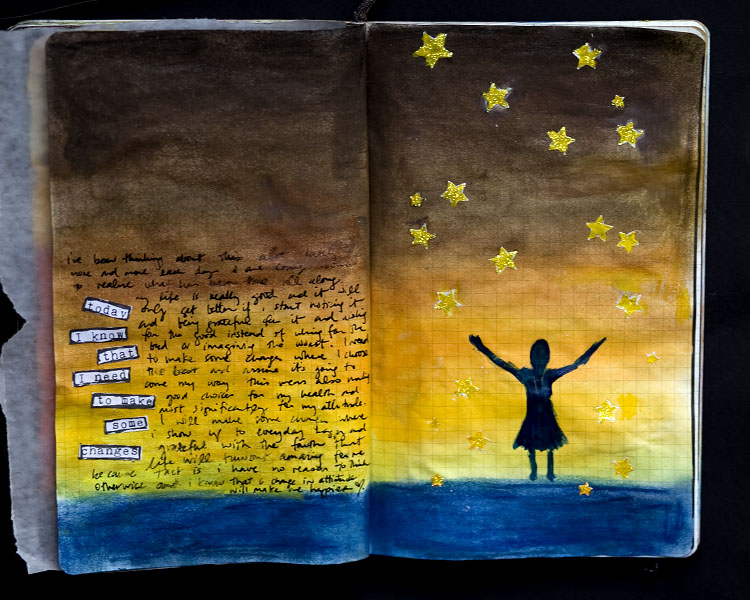 i've been thinking about this a lot lately
more and more each day i am coming
to realize what has been true all along
my life is really good and it will
only get better if i start noticing it
and being grateful for it and using
for the good instead of using for the
bad or imagining the worst. i need
to make some changes where i choose
the best and assume it's going to
come my way. This means also making
good choices for my health and
most significantly for my attitude.
i will make some changes where
i show up to everyday happy and
grateful with the faith that
life will turnout amazing for me
because fact is i have no reason to think
otherwise and i know that a change in attitude
will make me happier
today
I know
that
I need
to make
some
changes